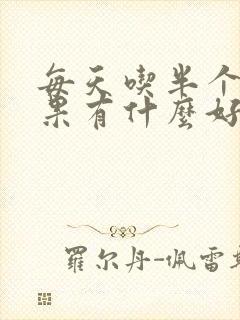 每天喫半个
果有什麼好
羅尔丹-佩雷